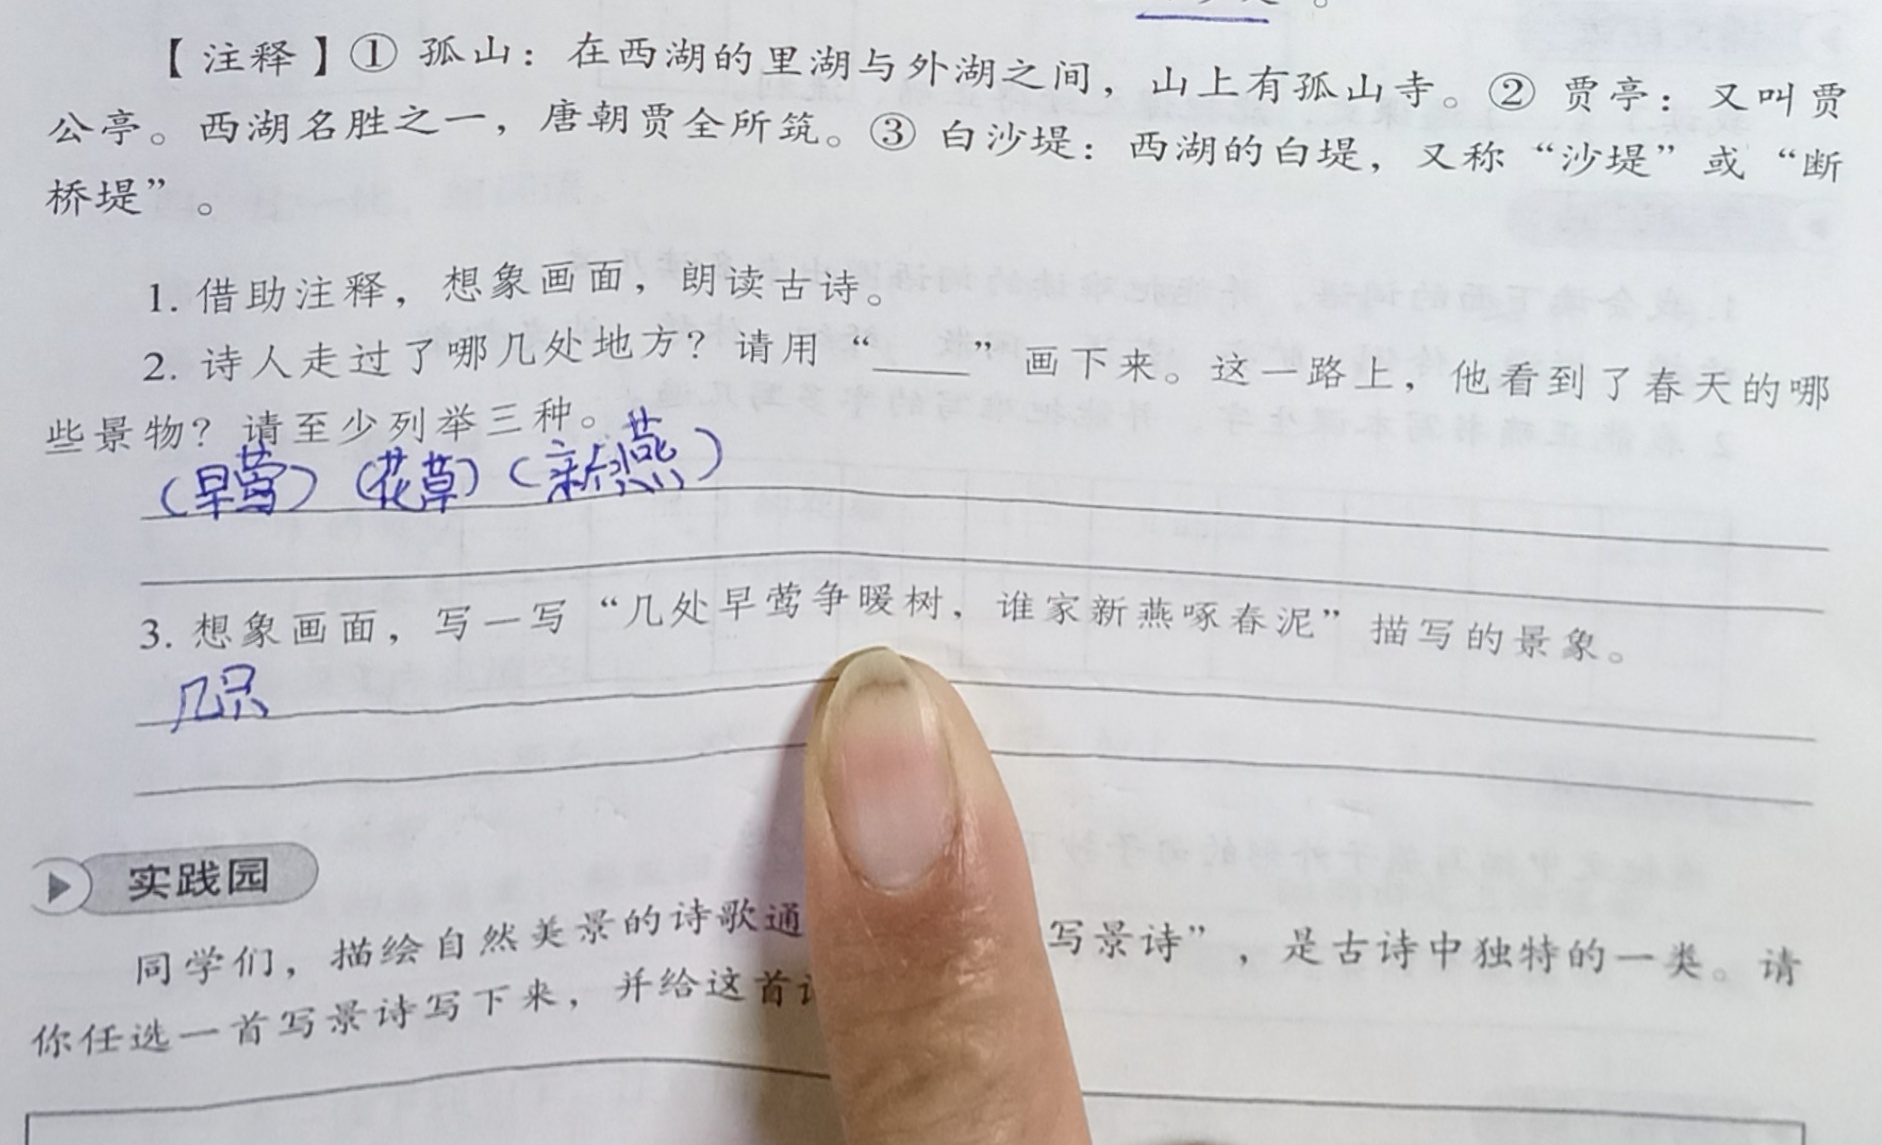 【注释】① 孤山：在西湖的里湖与外湖之间，山上有孤山寺。② 贾亭：又叫贾
公亭。西湖名胜之一，唐朝贾全所筑。③ 白沙堤：西湖的白堤，又称“沙堤”或“断
桥堤”。
1. 借助注释，想象画面，朗读古诗。
2. 诗人走过了哪几处地方？请用“____”画下来。这一路上，他看到了春天的哪
些景物？请至少列举三种。
（早莺）（花草）（新燕）
3. 想象画面，写一写“几处早莺争暖树，谁家新燕啄春泥”描写的景象。
几只
实践园
同学们，描绘自然美景的诗歌通 写景诗”，是古诗中独特的一类。请
你任选一首写景诗写下来，并给这首